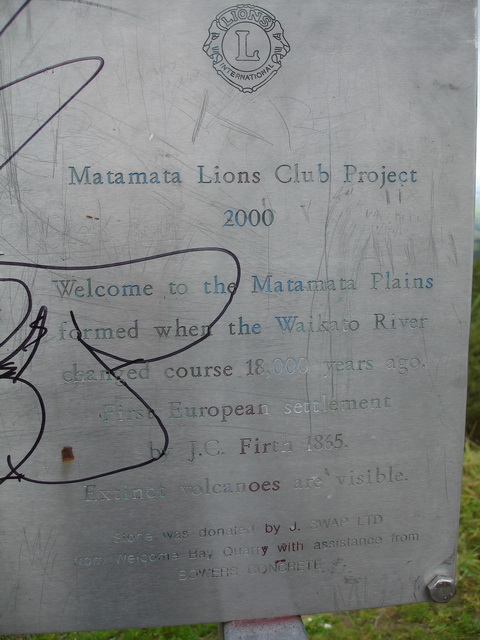 LIONS
L
INTERNATIONAL
Matamata Lions Club Project
2000
Welcome to the Matamata Plains
formed when the Waikato River
changed course 18,000 years ago.
First European settlement
by J.C. Firth 1865.
Extinct volcanoes are visible.
Stone was donated by J. SWAP LTD
from Welcome Bay Quarry with assistance from
BOWERS CONCRETE.